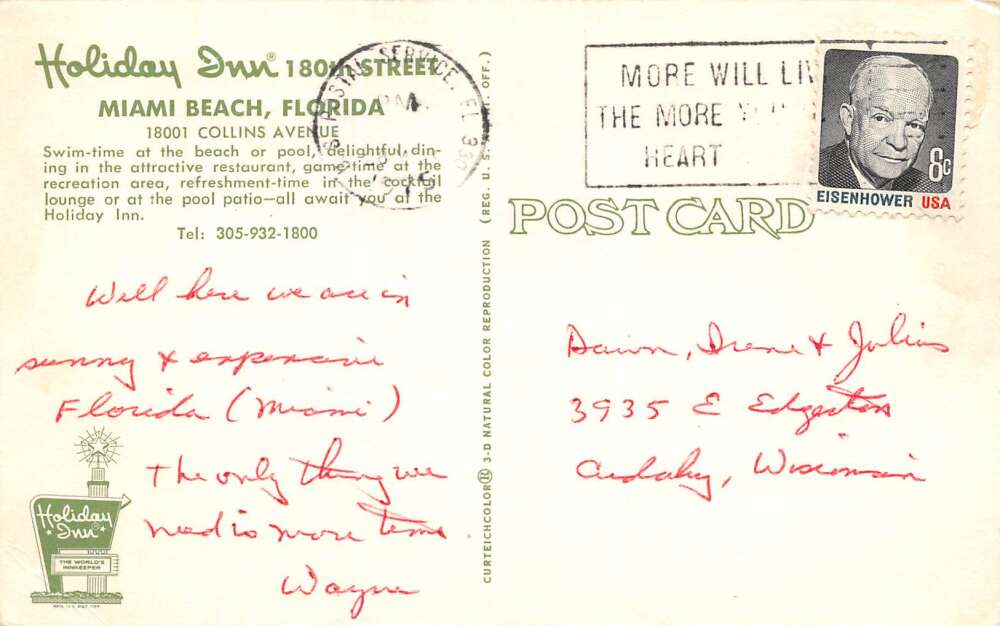 Holiday Inn® 180th STREET
MIAMI BEACH, FLORIDA
18001 COLLINS AVENUE
Swim-time at the beach or pool, delightful din-
ing in the attractive restaurant, game-time at the
recreation area, refreshment-time in the cocktail
lounge or at the pool patio—all await you at the
Holiday Inn.
Tel: 305-932-1800
Well here we are in
sunny & expensive
Florida (Miami)
The only thing we
need is more time
Wayne
Holiday
Inn®
THE WORLD'S
INNKEEPER
CURTEICHCOLOR® 3-D NATURAL COLOR REPRODUCTION (REG. U. S. A. PAT. OFF.)
POSTAL SERVICE, FL
PM
MORE WILL LIV
THE MORE YOU
HEART
8c
EISENHOWER USA
POST CARD
Dawn, Irene & Julius
3935 E Edgerton
Cudahy, Wisconsin